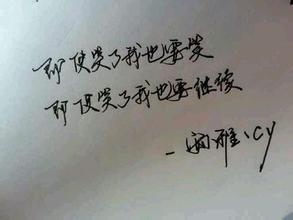 即使哭了我也要笑
即使哭了我也要继续
-雅、cy